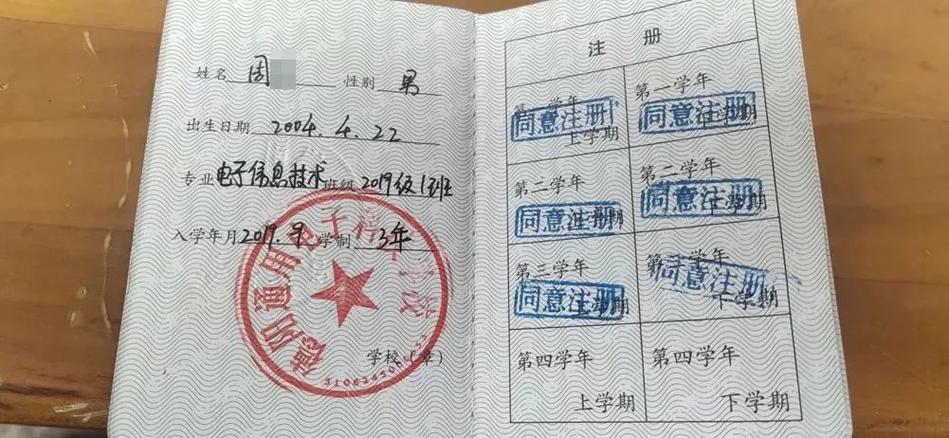 姓名 周 性别 男
出生日期 2004.4.22
专业 电子信息技术 班级 2019级1班
入学年月 2019.9 学制 3年
学校(章)
绵阳通用电子科
注册
第一学年
同意注册
上学期
第一学年
同意注册
下学期
第二学年
同意注册
上学期
第二学年
同意注册
下学期
第三学年
同意注册
上学期
第三学年
同意注册
下学期
第四学年
上学期
第四学年
下学期